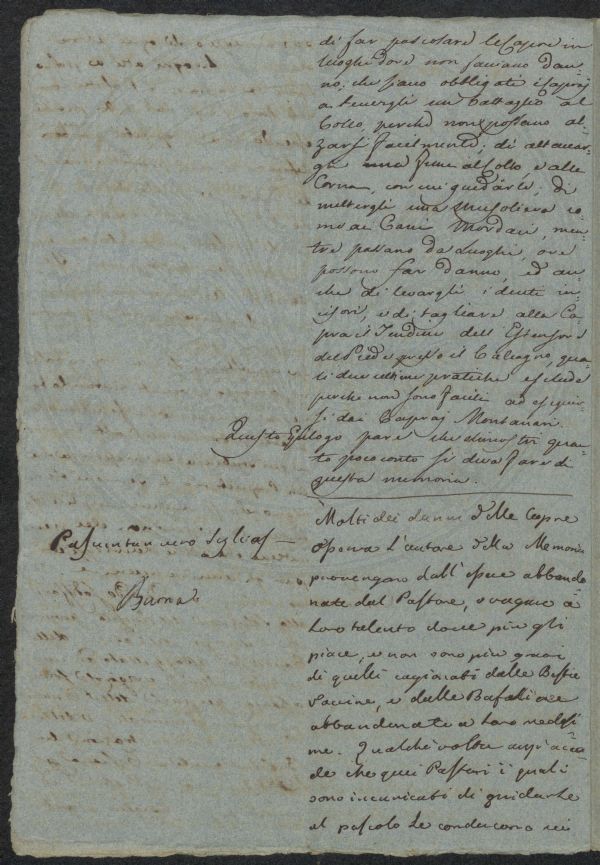 di far pascolare le Capre in
luoghi dove non facciano dan-
no; che siano obbligati i Capraj
a tenergli un Battaglio al
Collo, perchè non possano al-
zarsi facilmente, di attaccar-
gli una fune al Collo, e alle
Corna, con cui guidarle, di
mettergli una Musoliera co-
me ai Cani Mordaci, men-
tre passano da Luoghi, ove
possono far danno, ed an-
che di levargli i denti in-
cisori, e di tagliare alla Ca-
pra il Tendine dell' Estensore
del Piede presso il Calcagno, qua-
li due ultime pratiche esclude
perchè non sono facili ad eseguir-
si dai Capraj Montanari.
Questo Epilogo pare che dimostri quan-
to poco conto si deva fare di
questa memoria.
Molti dei danni delle Capre
Pascuntur vero Sylvas —
osserva l'autore della Memoria
provengano dall' esser abbando-
nate dal Pastore, e vagare a
loro talento dove più gli
piace, e non sono più gravi
di quelli cagionati dalle Bestie
Vaccine, e dalle Bufaline
abbandonate a loro medesi-
me. Qualche volta
de che quei Pastori i quali
sono incaricati di guidarle
al pascolo le conducono